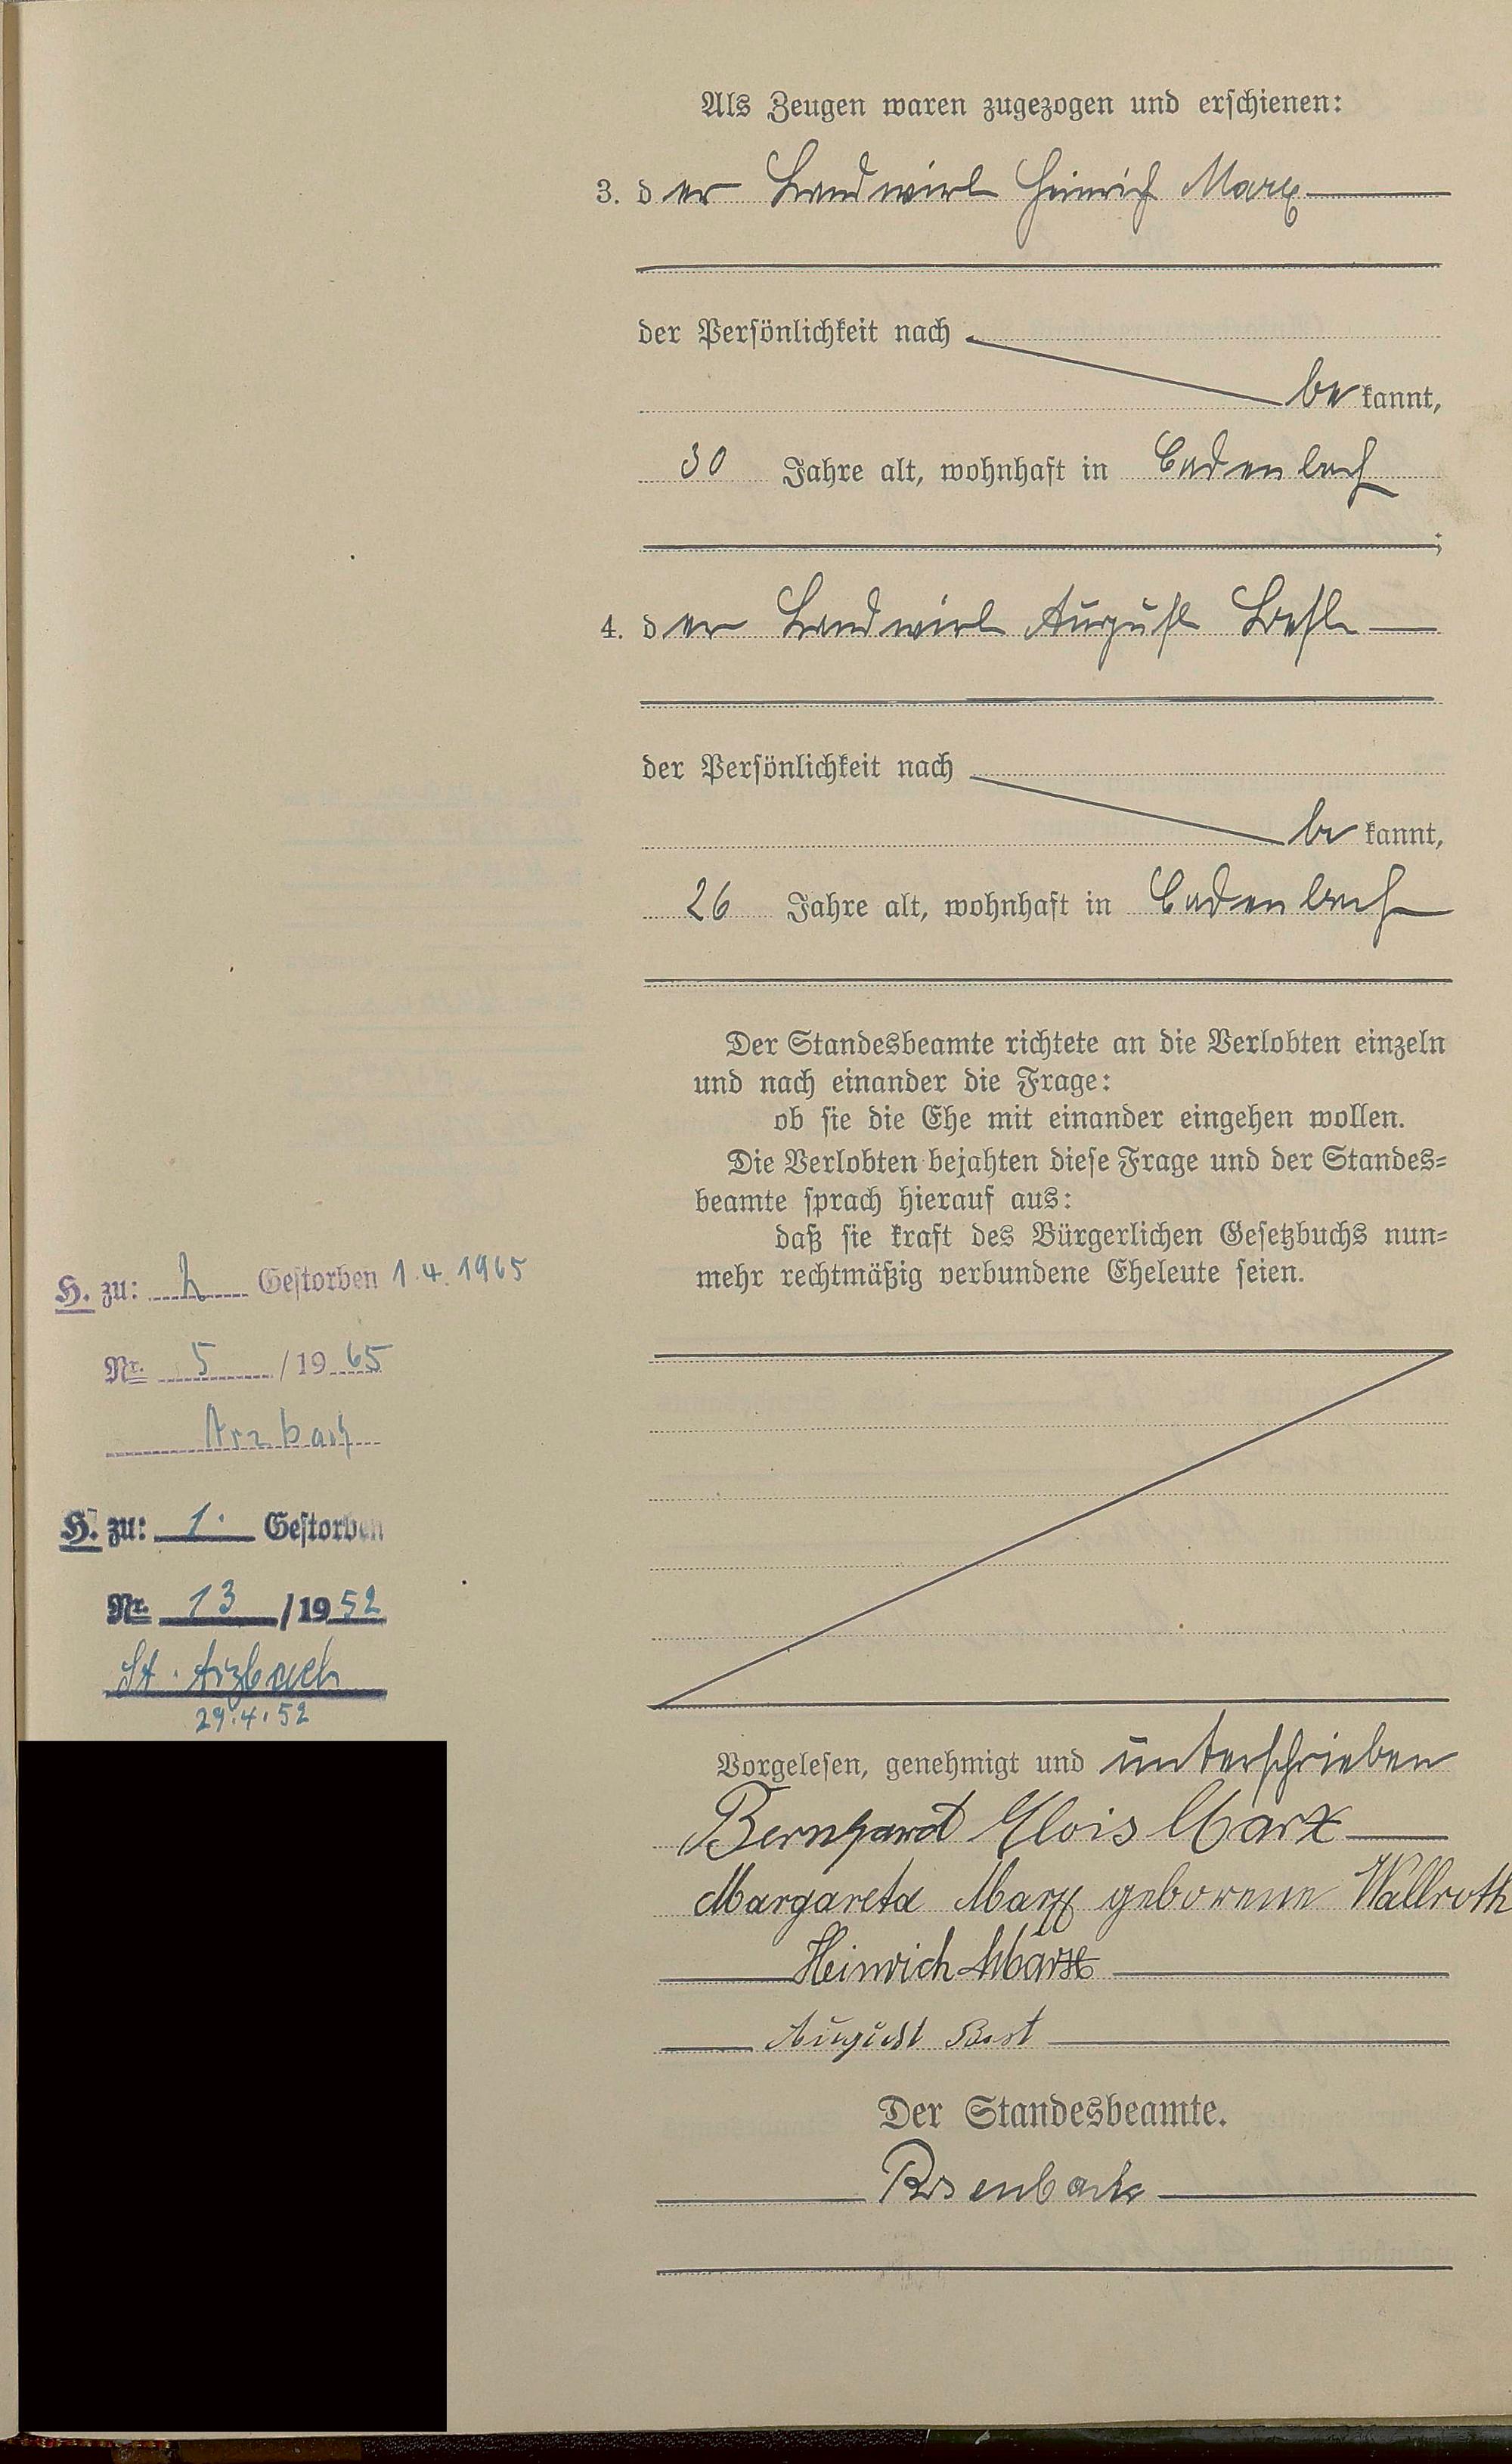 Als Zeugen waren zugezogen und erschienen:
3. der Landwirt Heinrich Marx
der Persönlichkeit nach
bekannt,
30 Jahre alt, wohnhaft in Cadenbach
;
4. der Landwirt August Best
der Persönlichkeit nach
bekannt,
26 Jahre alt, wohnhaft in Cadenbach
Der Standesbeamte richtete an die Verlobten einzeln
und nach einander die Frage:
ob sie die Ehe mit einander eingehen wollen.
Die Verlobten bejahten diese Frage und der Standes=
beamte sprach hierauf aus:
daß sie kraft des Bürgerlichen Gesetzbuchs nun=
mehr rechtmäßig verbundene Eheleute seien.
H. zu: 2 Gestorben 1.4.1965
Nr. 5 / 19 65
Arzbach
H. zu: 1. Gestorben
Nr. 13 / 19 52
St. Arzbach
29.4.52
Vorgelesen, genehmigt und unterschrieben
Bernhard Alois Marx
Margareta Marx geborene Wallroth
Heinrich Marx
August Best
Der Standesbeamte.
Rosenbach